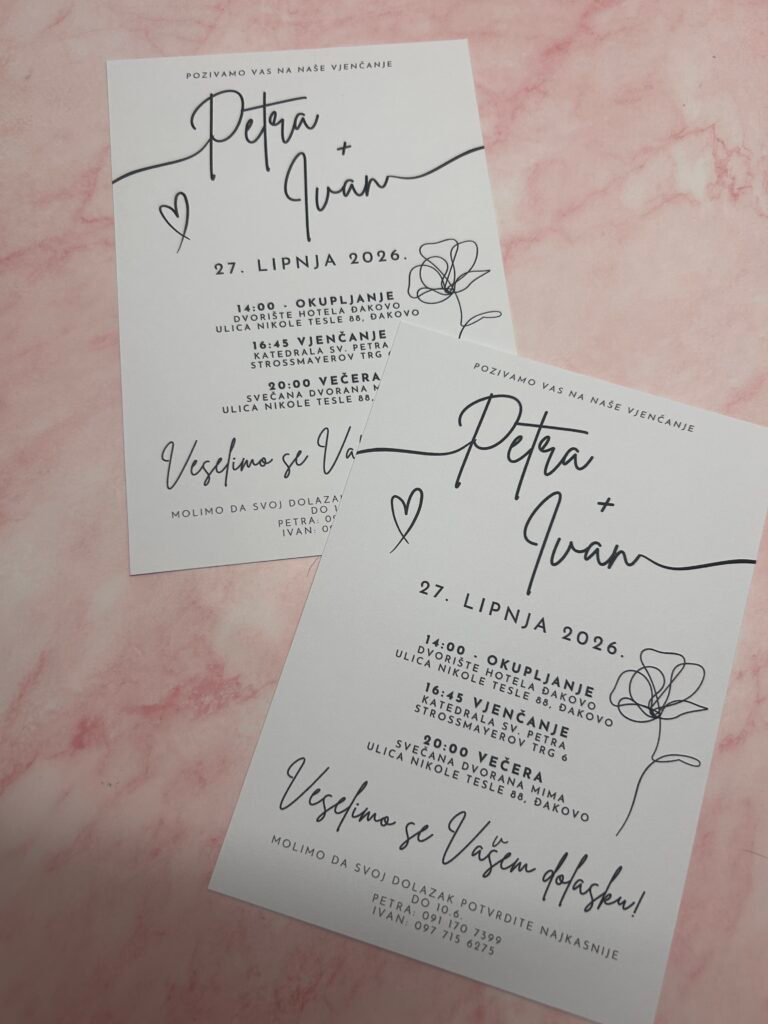 POZIVAMO VAS NA NAŠE VJENČANJE
Petra
+
Ivan
27. LIPNJA 2026.
14:00 - OKUPLJANJE
DVORIŠTE HOTELA ĐAKOVO
ULICA NIKOLE TESLE 88, ĐAKOVO
16:45 VJENČANJE
KATEDRALA SV. PETRA
STROSSMAYEROV TRG 6
20:00 VEČERA
SVEČANA DVORANA M
ULICA NIKOLE TESLE 88,
Veselimo se Va
MOLIMO DA SVOJ DOLAZAK
DO 1
PETRA: 09
IVAN: 09
POZIVAMO VAS NA NAŠE VJENČANJE
Petra
+
Ivan
27. LIPNJA 2026.
14:00 - OKUPLJANJE
DVORIŠTE HOTELA ĐAKOVO
ULICA NIKOLE TESLE 88, ĐAKOVO
16:45 VJENČANJE
KATEDRALA SV. PETRA
STROSSMAYEROV TRG 6
20:00 VEČERA
SVEČANA DVORANA MIMA
ULICA NIKOLE TESLE 88, ĐAKOVO
Veselimo se Vašem dolasku!
MOLIMO DA SVOJ DOLAZAK POTVRDITE NAJKASNIJE
DO 10.6.
PETRA: 091 170 7399
IVAN: 097 715 6275